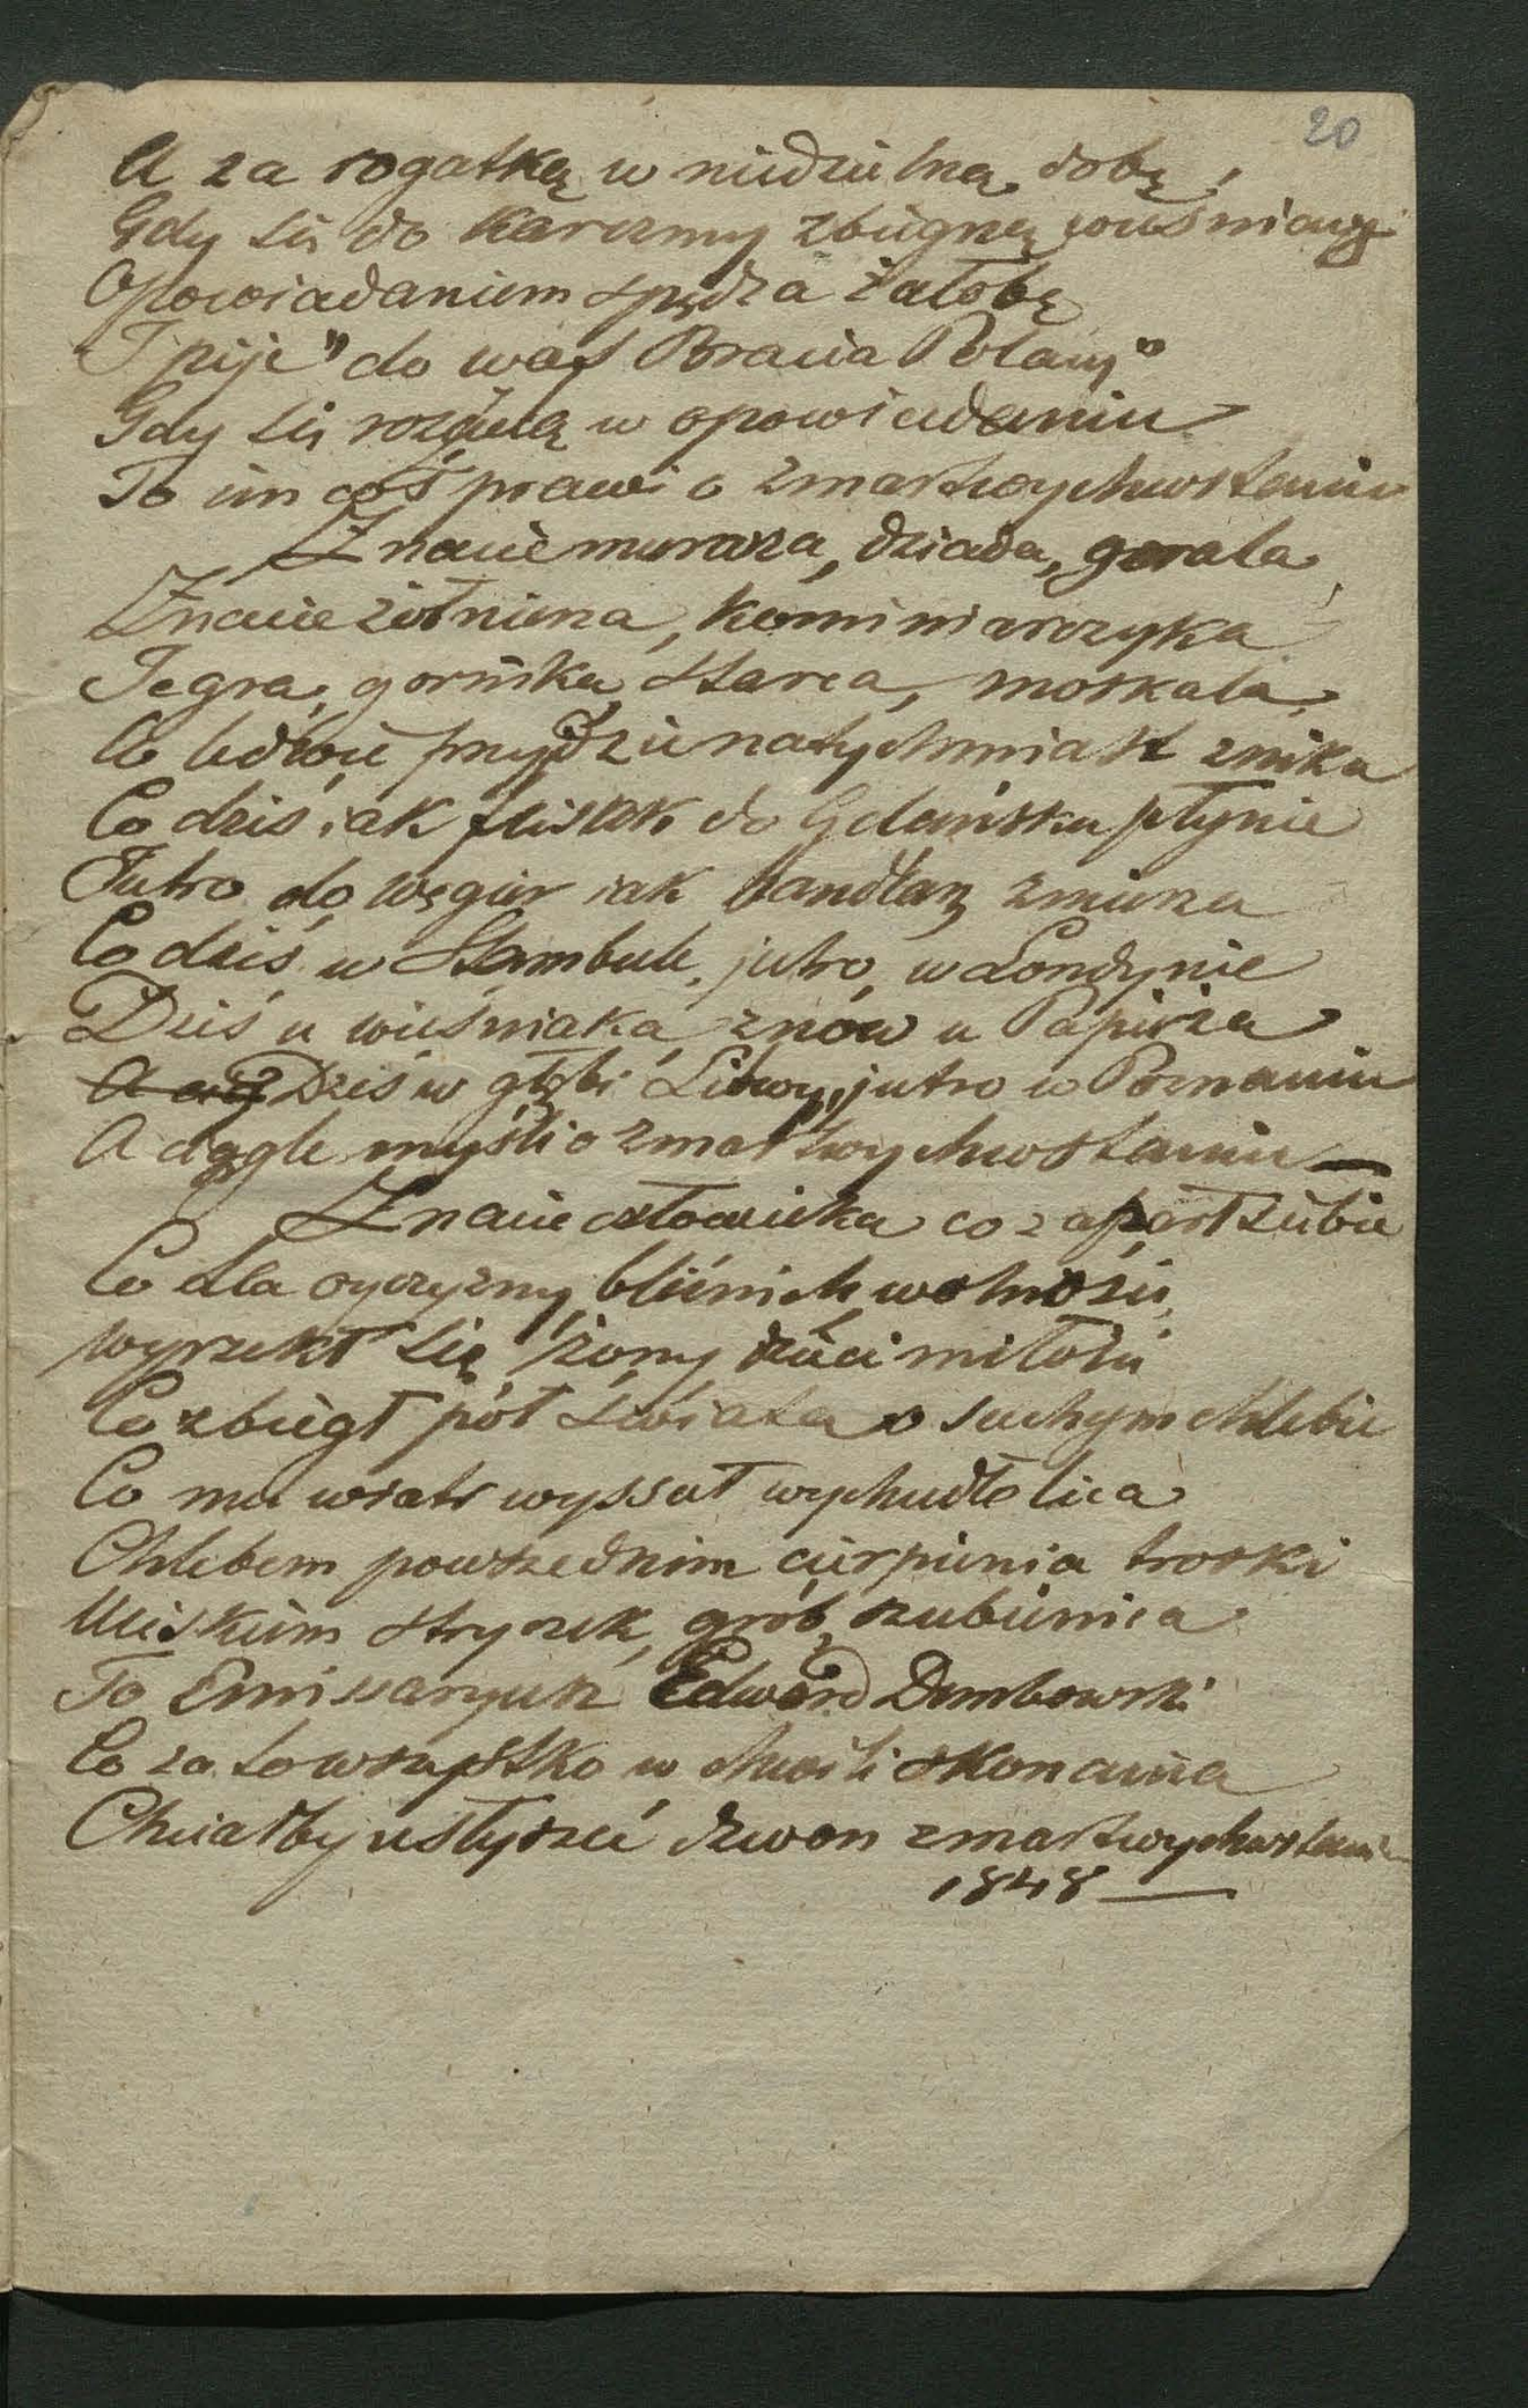 20
A za rogatką w niedzielną dobę,
Gdy się do karczmy zbiegną wieśniacy
Opowiadaniem spędza żałobę
I pije "do was Bracia Polacy"
Gdy się rozżalą w opowiadaniu
To im coś prawi o zmartwychwstaniu
Znacie murarza, dziada, gorala,
Znacie żołnierza, kominiarczyka
Jegra, gornika, starca, moskala,
Co ledwie przyjdzie natychmiast znika
Co dziś iak flisak do Gdańska płynie
Jutro do węgier iak handlarz zmierza
Co dziś w Stambule, jutro, w Londynie
Dziś u wieśniaka, znów u Papieża
Dziś w głębi Litwy, jutro w Poznaniu
A ciągle myśli o zmartwychwstaniu —
Znacie człowieka co zaparł siebie
Co dla oyczyzny, bliźnich, wolności,
wyrzekł się żony, dzieci miłości
Co zbiegł pół świata o suchym chlebie
Co mu wiatr wyssał wychudłe lica
Chlebem powszednim cierpienia troski
Uciskiem stryczek, grób, szubienica
To Emissaryusz Edward Dembowski
Co za to wszystko w chwili skonania
Chciałby usłyszeć dzwon zmartwychwstania
1848 —